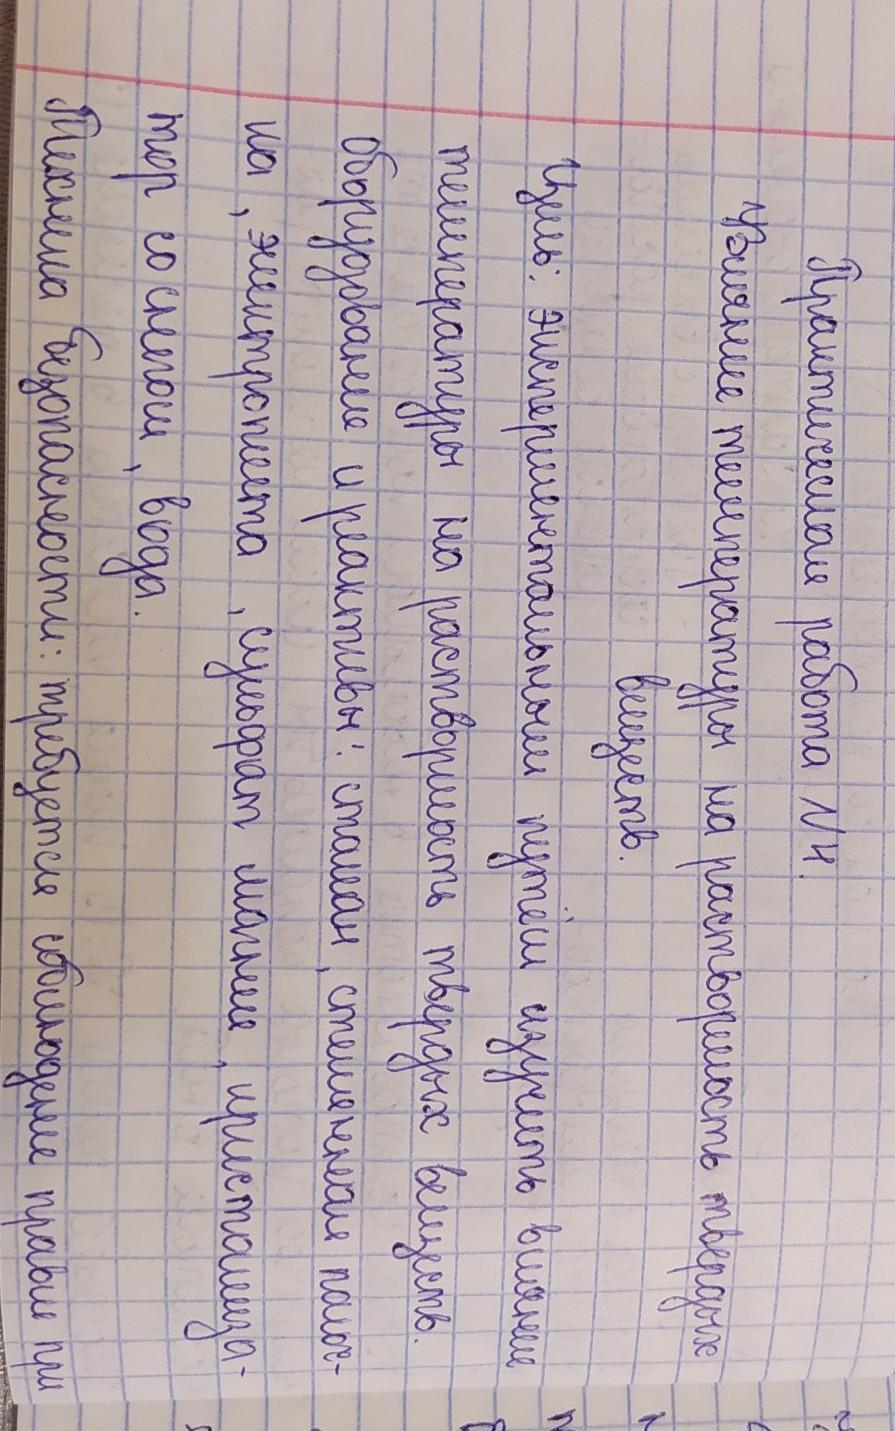 Практическая работа №4.
"Влияние температуры на растворимость твердых
веществ.
Цель: экспериментальным путём изучить влияние
температуры на растворимость твердых веществ.
Оборудование и реактивы: стакан, стеклянная палоч-
ка, электроплита, сульфат магния, кристаллиза-
тор со снегом, вода.
Техника безопасности: требуется соблюдение правил при